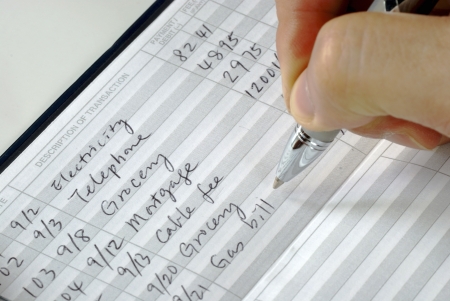 DESCRIPTION OF TRANSACTION PAYMENT
9/2 Electricity 82 41
02 9/3 Telephone 48 95
103 9/8 Grocery 29 75
04 9/12 Mortgage 1200
9/13 Cable fee
9/20 Grocery
9/21 Gas bill